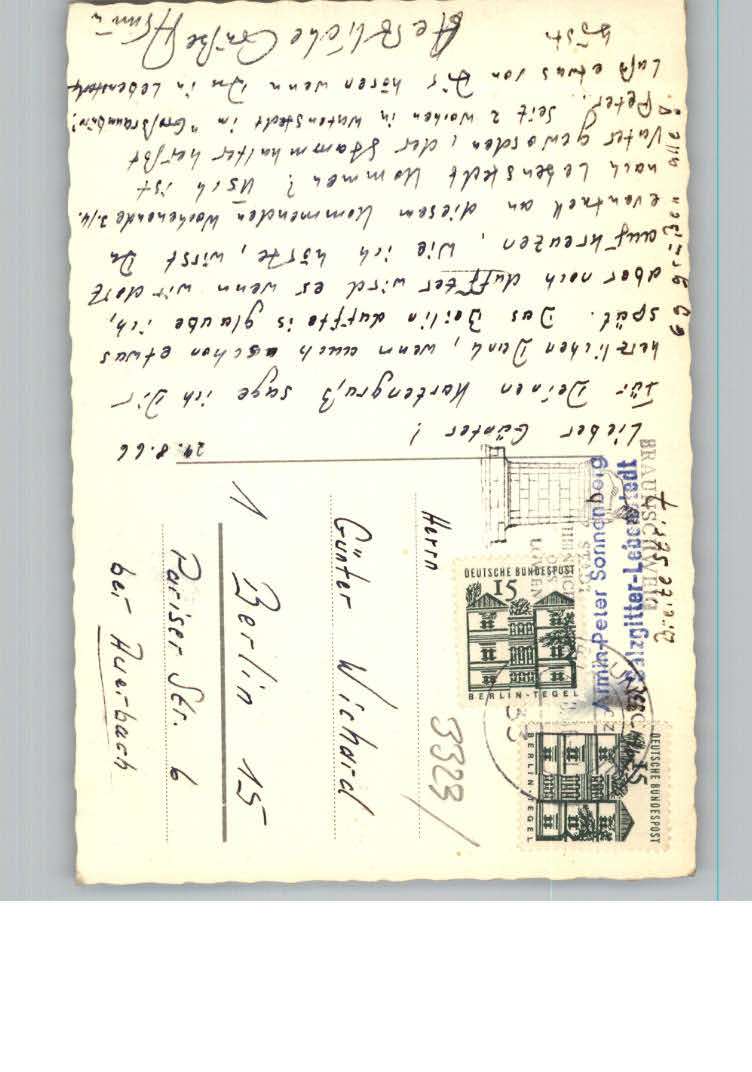 29.8.66
Lieber Günter!
Für Deinen Kartengruß sage ich Dir
herzlichen Dank, wenn auch schon etwas
spät. Das Berlin dufte is glaube ich,
aber noch duffter wird es wenn wir dort
aufkreuzen. Wie ich hörte, wirst Du
eventuell an diesem kommenden Wochenende 3./4.
nach Lebenstedt kommen? Usch ist
Vater geworden, der Stammhalter heißt
Peter. Seit 2 Wochen in Watenstedt im
Laß etwas von Dir hören wenn Du in Lebenstedt
bist.
Herzliche Grüße Armin
Armin-Peter Sonnenberg
Salzgitter-Lebenstedt
BRAUNSCHWEIG
STADT
HEINRICHS
DES
LÖWEN
DEUTSCHE BUNDESPOST
15
BERLIN-TEGEL
DEUTSCHE BUNDESPOST
15
BERLIN-TEGEL
33
3323/
Herrn
Günter Wichard
1 Berlin 15
Pariser Str. 6
bei Auerbach